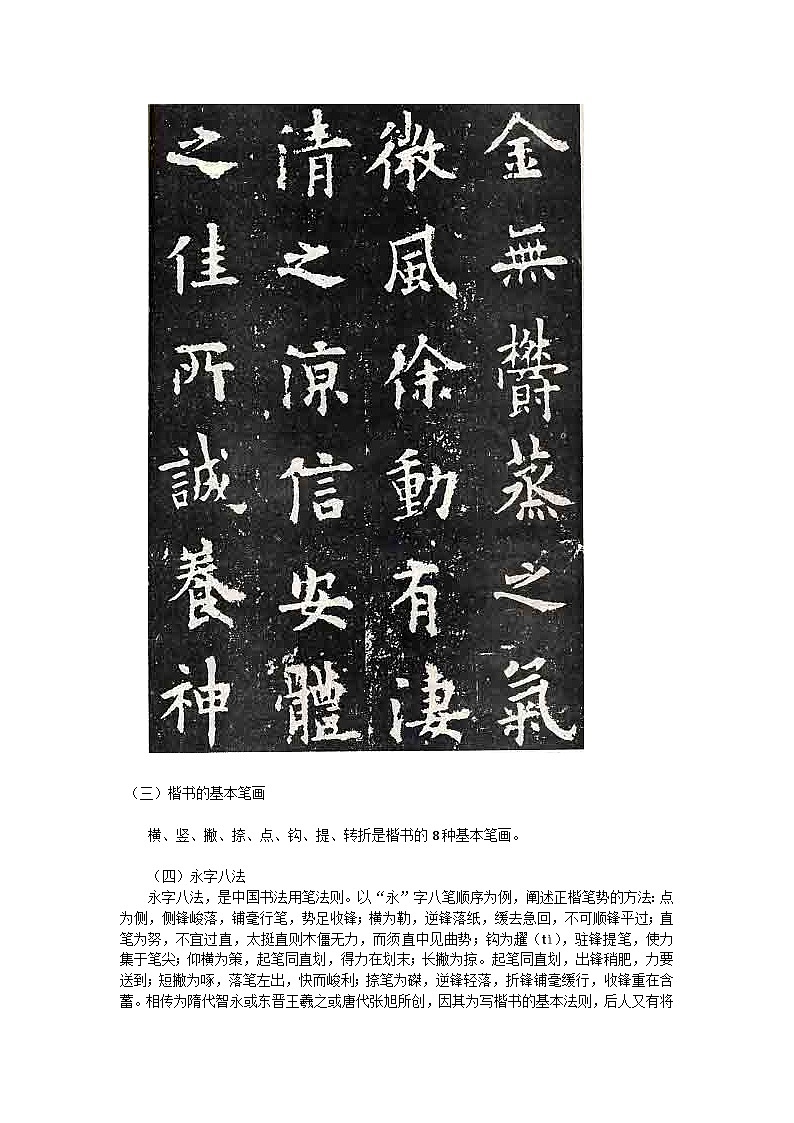 金無欝蒸之氣
微風徐動有淒
清之涼信安體
之佳所誠養神
（三）楷书的基本笔画
横、竖、撇、捺、点、钩、提、转折是楷书的 8 种基本笔画。
（四）永字八法
永字八法，是中国书法用笔法则。以“永”字八笔顺序为例，阐述正楷笔势的方法：点
为侧，侧锋峻落，铺毫行笔，势足收锋；横为勒，逆锋落纸，缓去急回，不可顺锋平过；直
笔为努，不宜过直，太挺直则木僵无力，而须直中见曲势；钩为趯（tì），驻锋提笔，使力
集于笔尖；仰横为策，起笔同直划，得力在划末；长撇为掠。起笔同直划，出锋稍肥，力要
送到；短撇为啄，落笔左出，快而峻利；捺笔为磔，逆锋轻落，折锋铺毫缓行，收锋重在含
蓄。相传为隋代智永或东晋王羲之或唐代张旭所创，因其为写楷书的基本法则，后人又有将